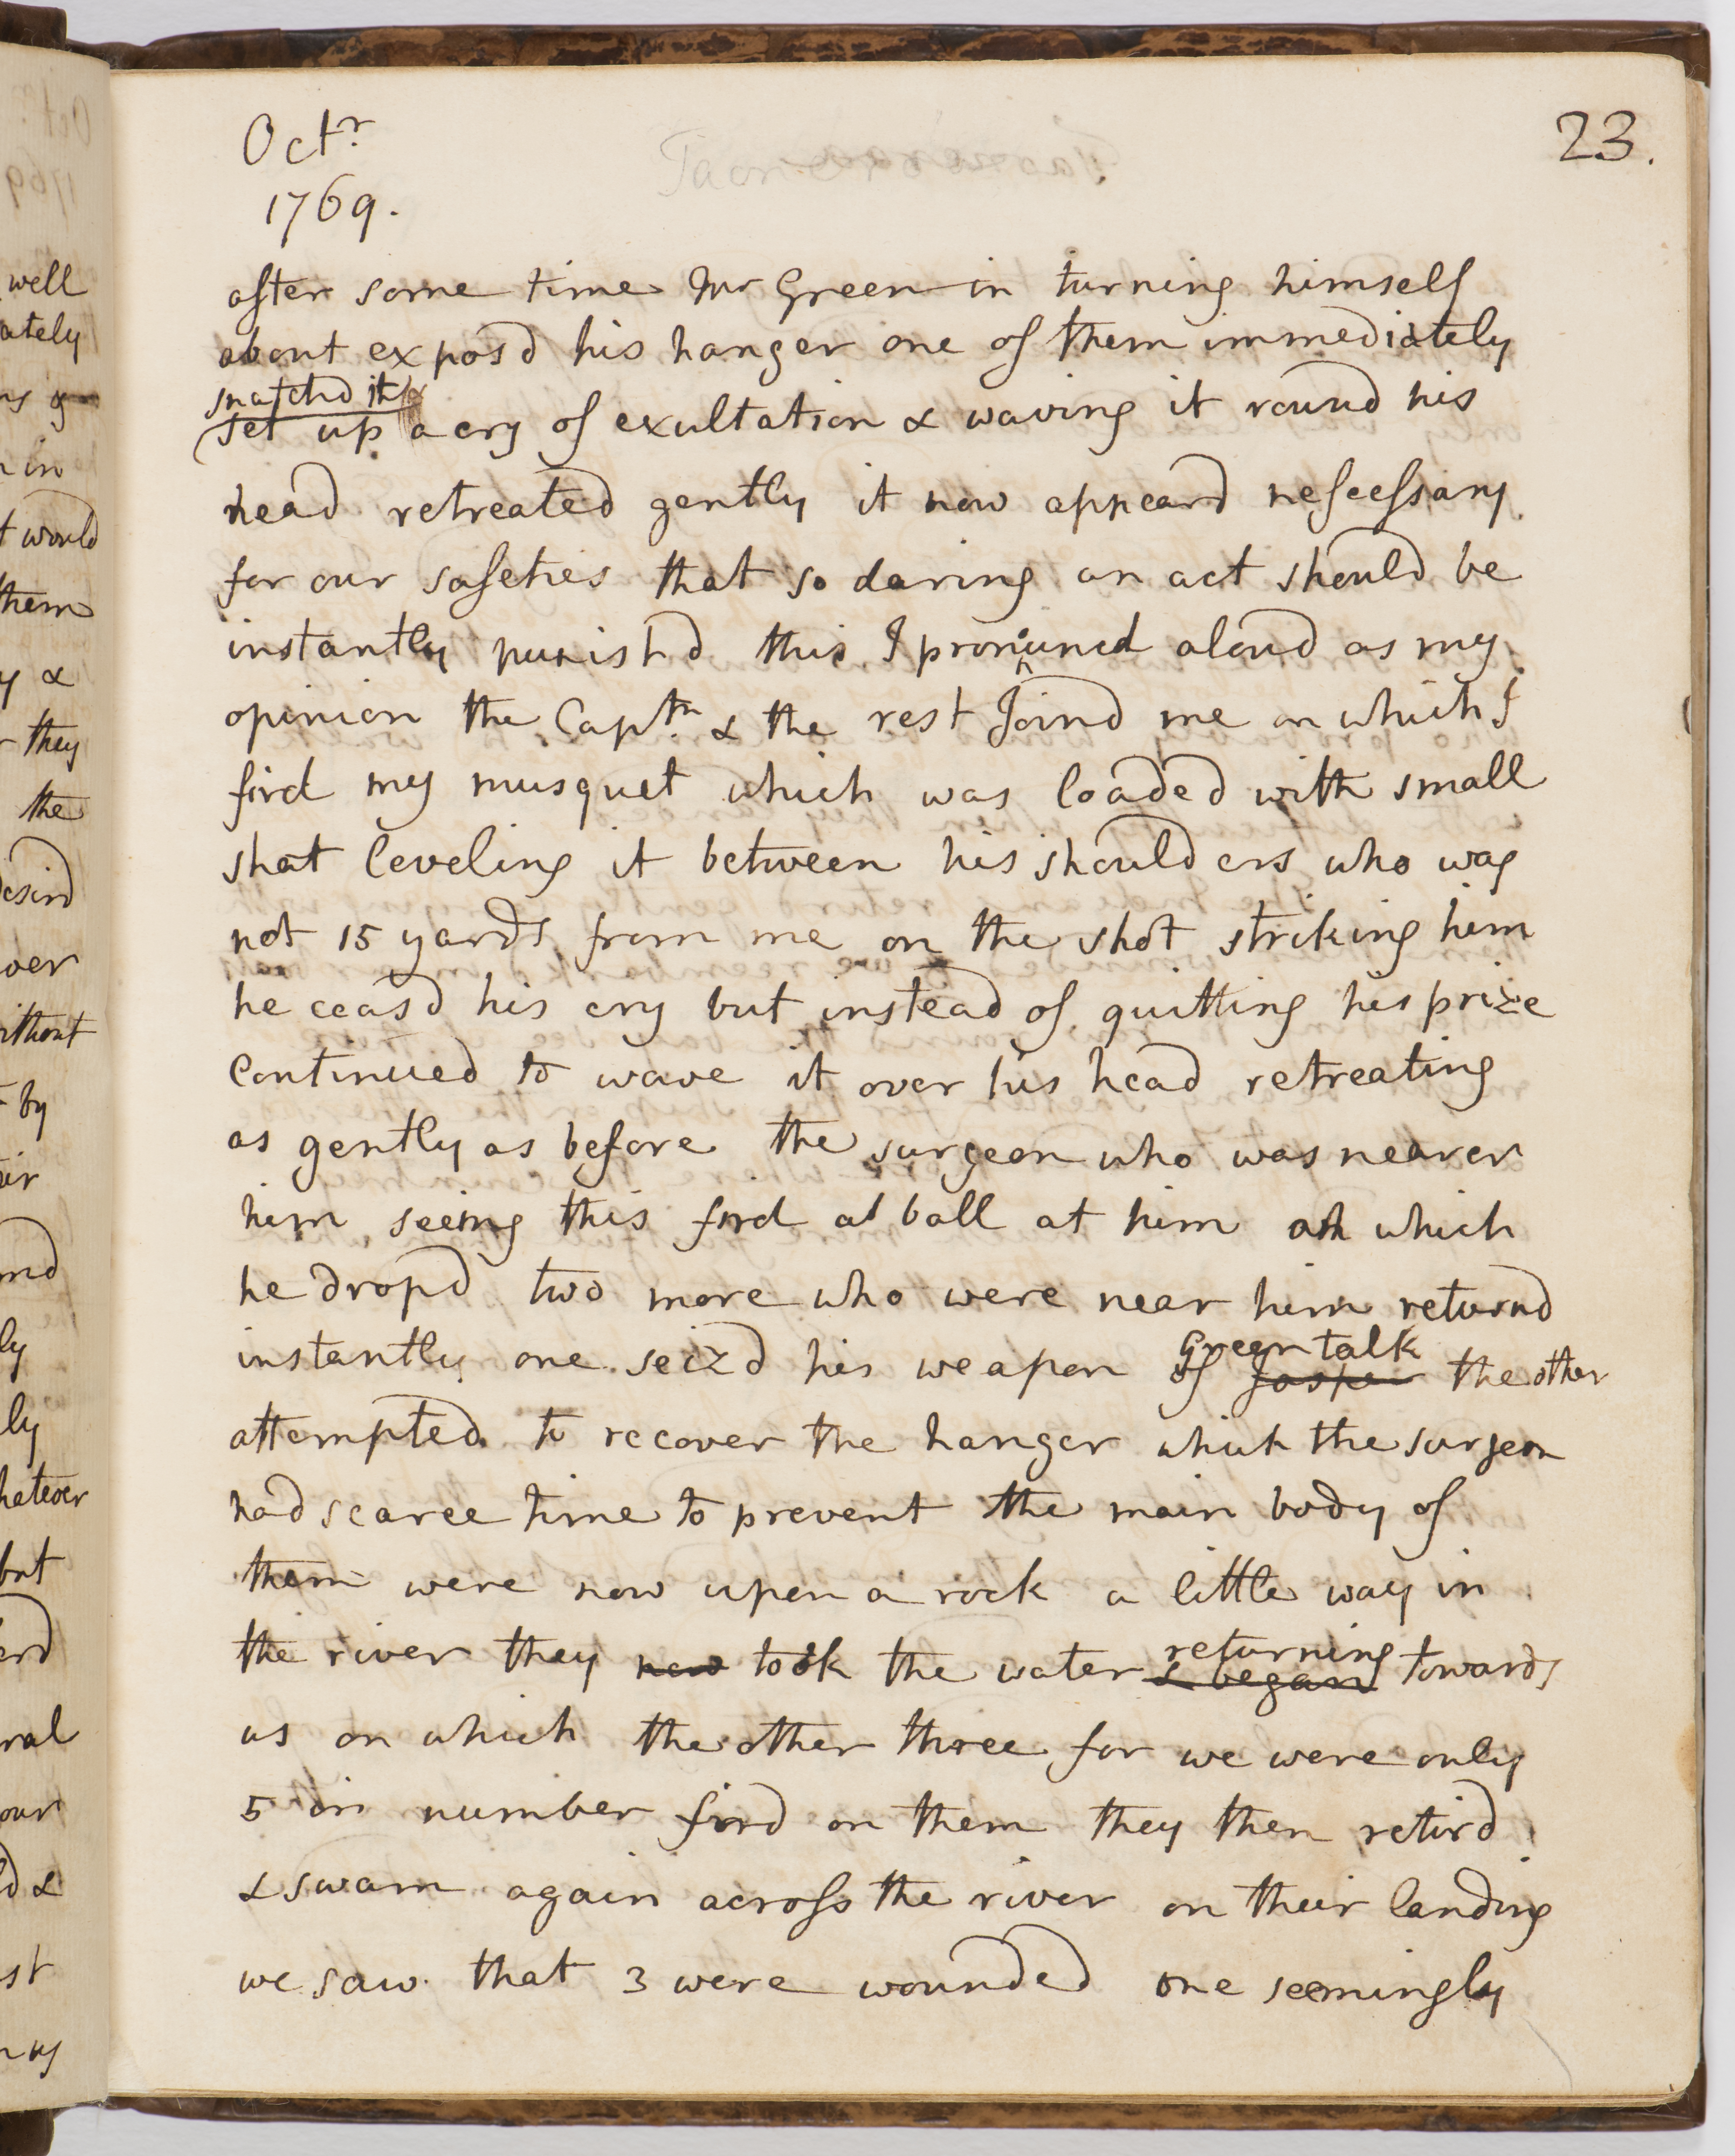 Octr
1769.
23.
after some time Mr Green in turning himself
about exposd his hanger one of them immediately
snatchd it &
set up a cry of exultation & waving it round his
head retreated gently it now appeard nescessary
for our safeties that so daring an act should be
instantly punishd this I pronuncd aloud as my
opinion the Captn & the rest Joind me on which I
fird my musquet which was loaded with small
shot leveling it between his shoulders who was
not 15 yards from me on the shot striking him
he ceasd his cry but instead of quitting his prize
continued to wave it over his head retreating
as gently as before the surgeon who was nearer
him seeing this fird a ball at him at which
he dropd two more who were near him returnd
instantly one seizd his weapon of Green talk the other
attempted to recover the hanger which the surgeon
had scarce time to prevent the main body of
them were now upon a rock a little way in
the river they now took the water & began returning towards
us on which the other three for we were only
5 in number fird on them they then retird
& swam again across the river on their landing
we saw that 3 were wounded one seemingly
well
ately
in
would
them
y &
they
the
desird
over
ithout
by
eir
nd
ly
ly
hatever
but
erd
ral
our
d &
st